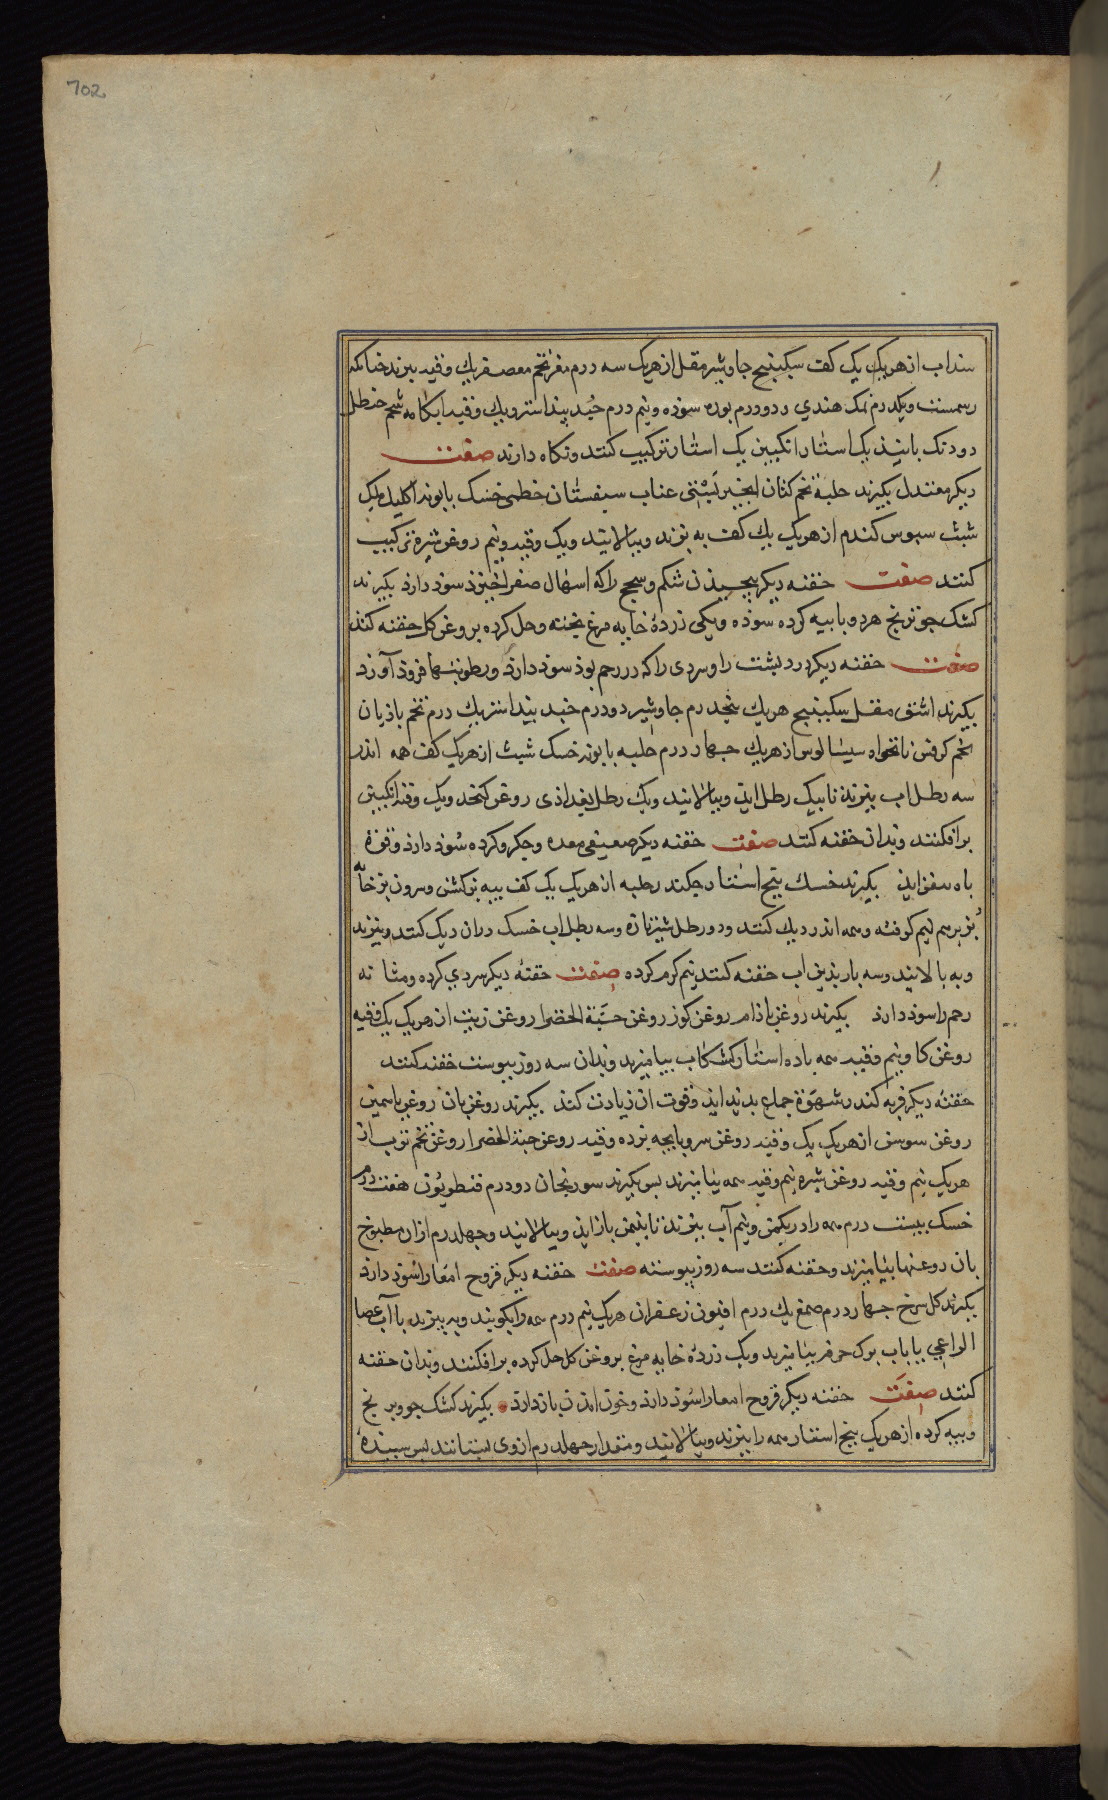 702
سنداب از هریک یک کف سکبینج جاوشیر مقل از هریک سه درم مغز تخم معصفر یک وقیه بپزند چنانکه
رسمست ویکدرم نمک هندي و دودرم بوره سوذه ونیم درم جُند بیداستر ویک وقیه آبکامه شحم حنظل
دودنک بانیذ یک استار انکبین یک استار ترکیب کنند ونکاه دارند صفت
دیکر معتدل بکیرند حلبه تخم کتان انجیر بُستی عناب سبستان خطمی خسک بابونه اکلیل ملک
شبث سبوس کندم از هریک یك کف به بزند وبپالایند ویک وقیه ونیم روغن شیره ترکیب
کنند صفت حقنه دیکر پیچیذن شکم وسحج را که اسهال صفرا خیزذ سوذ دارذ بکیرند
کشک جو برنج هردو با پیه کرده سوذه ویکی زردهٔ خایه مرغ پخته وحل کرده بروغن کل حقنه کنند
صفت حقنه دیکر درد پشت را وسردی را که در رحم بوذ سوذ دارذ ورطوبتها فروذ آورذ
بکیرند اشق مقل سکبینج هریك پنجدرم جاوشیر دودرم جند بیداستر یك درم تخم باذیان
تخم کرفس نانخواه سیسالوس از هریك چهار درم حلبه بابونه خسک شبث از هریک کف همه اندر
سه رطل اب بپزند تا بیک رطل ایذ وبپالایند ویك رطل بغداذی روغن کنجد ویک وقیه انکبین
برافکنند وبدان حقنه کنند صفت حقنه دیکر ضعیفی معده وجکر وکرده سُوذ دارذ وقوة
باه بیفزایذ بکیرند خسك پنج استار جکند رحلبه از هریک یک کف پیه بز کشتی وسرون بز خایه
بُز بریم نیم کوفته وهمه اندر دیك کنند ودو رطل شیر تازه وسه رطل اب خسک دران دیک کنند وبپزند
وبه بالایند وسه بار بذین اب حقنه کنند نیم کرم کرده صفت حقنه دیکر سردي کرده ومثانه
رحم را سوذ دارذ بکیرند روغن باذام روغن کوز روغن حبَّة الخضرا روغن زیت از هریک یک وقیه
روغن کاو نیم وقیه همه باده استار کشکاب بیامیزند وبدان سه روز پیوسته حقنه کنند
حقنه دیکر فربه کند وشهوَة جماع بدید ایذ وقوت ان زیادت کنذ بکیرند روغن بان روغن یاسمین
روغن سوسن از هریک یک وقیه روغن سروپایچه بز ده وقیه روغن حبة الخضرا روغن تخم ترب از
هریک نیم وقیه روغن شیره نیم وقیه همه بیامیزند پس بکیرند سورنجان دودرم قنطریُون هفت درم
خسک بیست درم همه را در یکمن ونیم آب بپزند تا بنیمن باز ایذ وبپالایند وچهلدرم ازان مطبوخ
بان روغنها بیامیزند وحقنه کنند سه روز پیوسته صفت حقنه دیکر قروح امعا را سُوذ دارذ
بکیرند کل سرخ چهار درم صمغ یك درم افیون زعفران هریک نیم درم همه را بکوبند وبه بیزند باآب عصا
الراعی یا باب برک خرفه بیامیزند ویک زردهٔ خایه مرغ بروغن کل حل کرده برافکنند وبدان حقنه
کنند صفَت حقنه دیکر قروح امعا را سُوذ دارذ وخون امدن بازدارذ بکیرند کشک جو وبرنج
وپیه کرده از هریک پنج استار همه را بپزند وبپالایند ومقدار چهلدرم ازوی بستانند پس سپیدهٔ